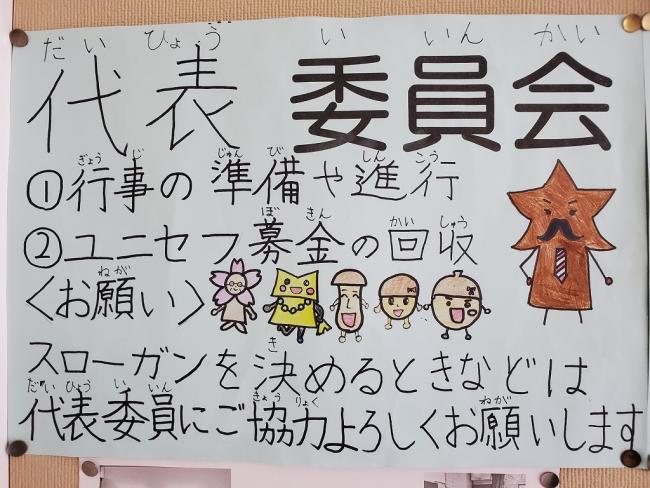 だいひょう いいんかい
代表 委員会
ぎょうじ じゅんび しんこう
①行事の準備や進行
ぼきん かいしゅう
②ユニセフ募金の回収
ねが
〈お願い〉
き
スローガンを決めるときなどは
だいひょういいん きょうりょく ねが
代表委員にご協力よろしくお願いします